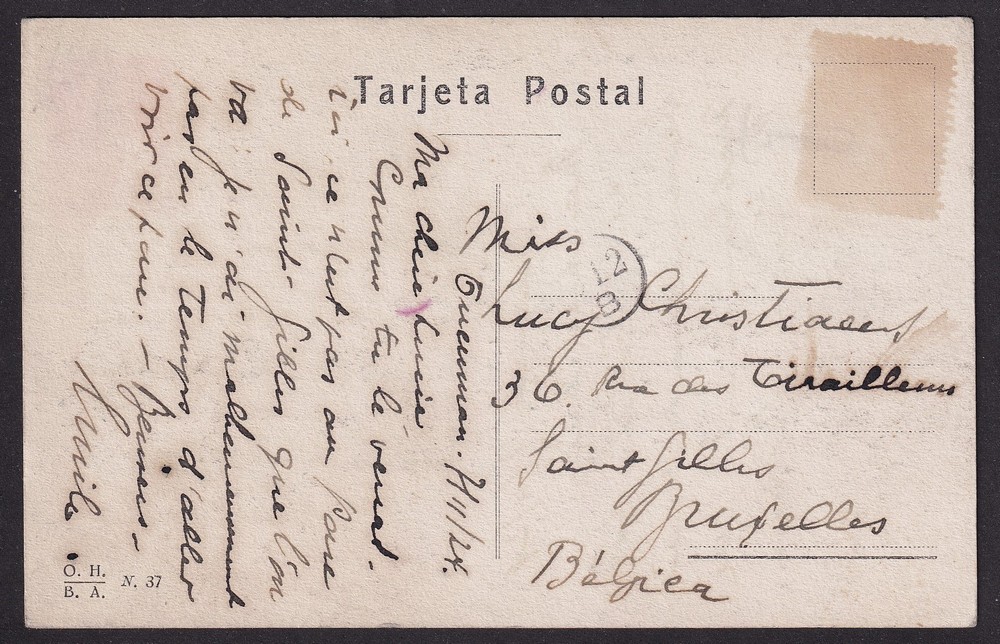 Tarjeta Postal
Tucuman. 7/11/24.
Ma chère Lucie
Comme tu le verras
ici ce n'est pas au Parc
de Saint-Gilles que l'on
va. Je n'ai malheureusement
pas eu le temps d'aller
voir ce parc. — Baisers —
Emile
Miss
Lucy Christiaens
36. Rua des Tirailleurs
Saint Gilles
Bruxelles
Bélgica
12
8
O. H.
B. A.
N. 37